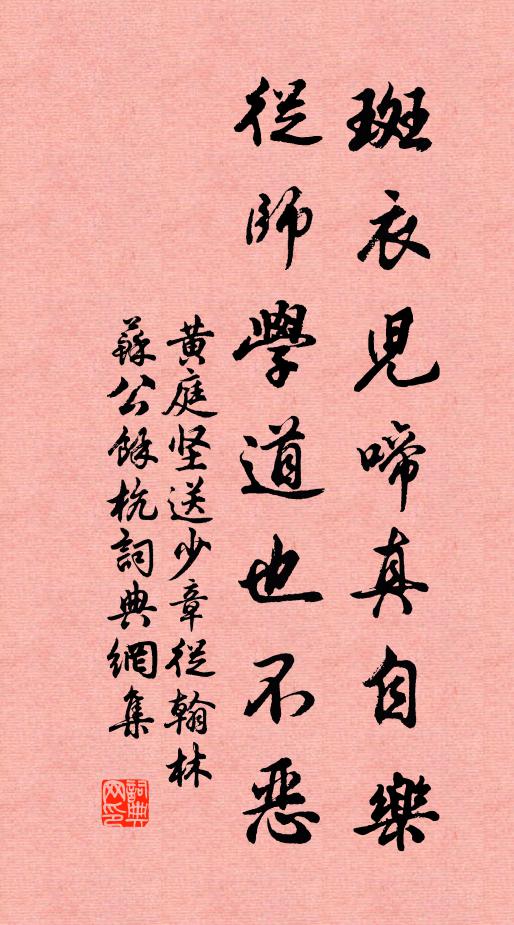 斑衣兒啼真自樂
從師學道也不惡
黄庭坚送少章從翰林
蘇公餘杭詞典網集
詞典网印